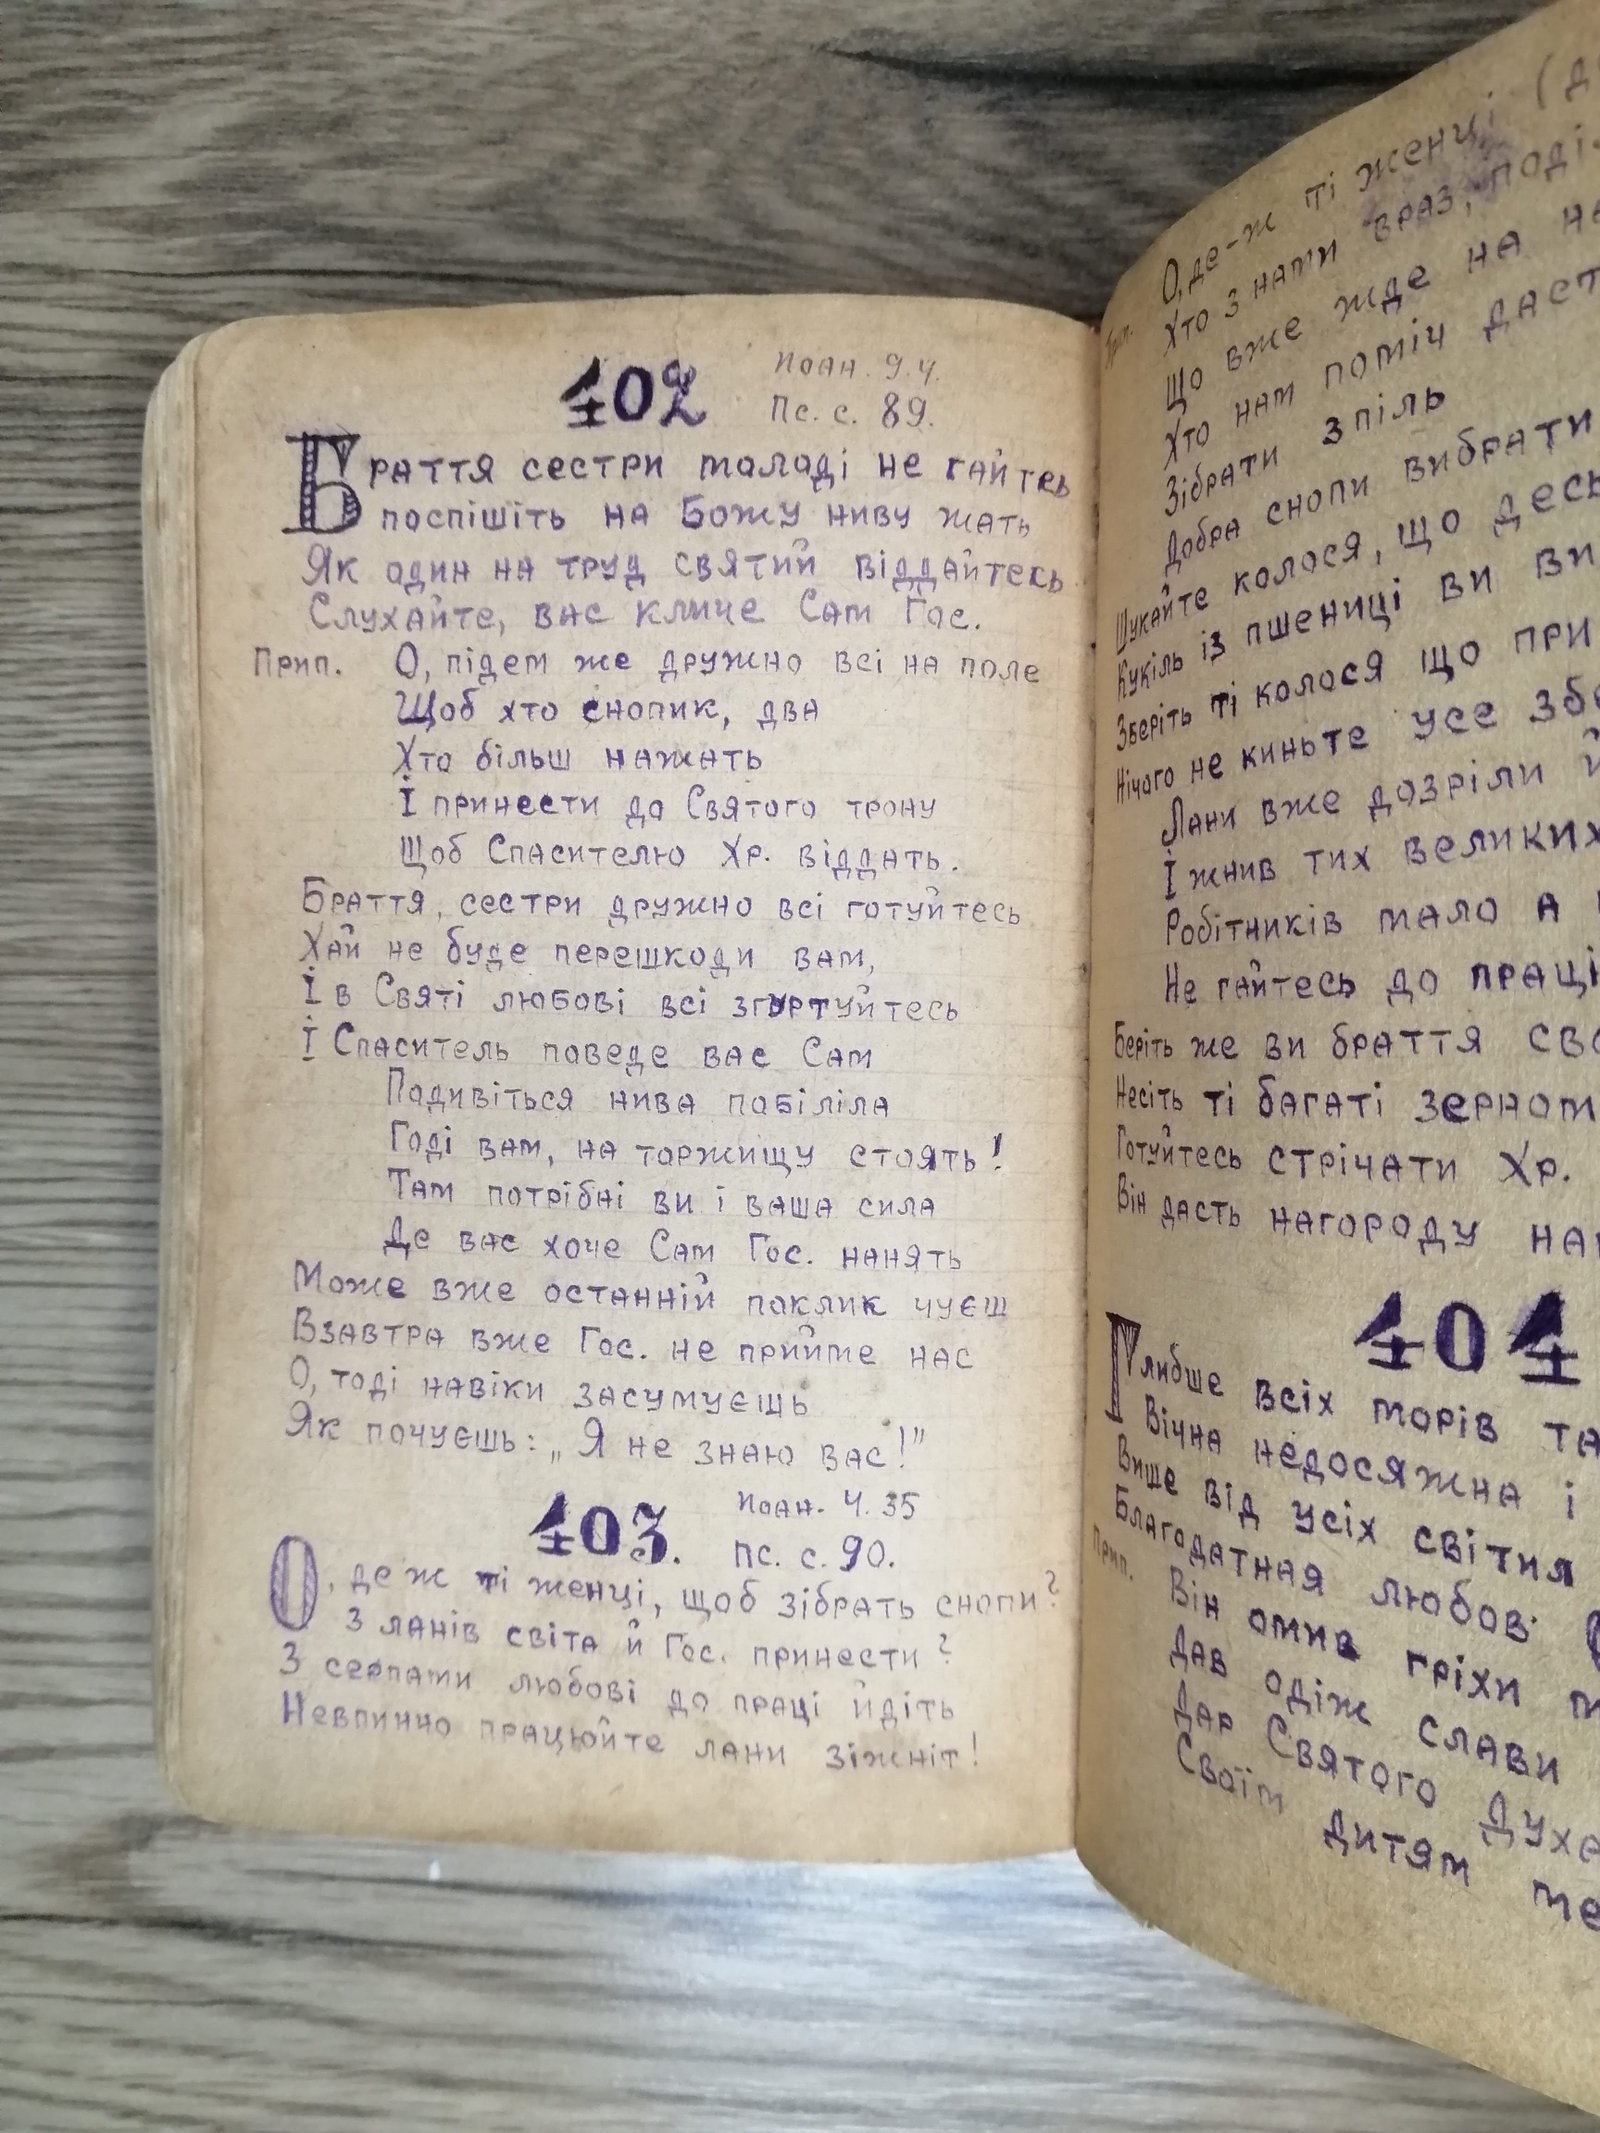 402
Иоан. 9.4.
Пс. с. 89.
Браття сестри молоді не гайтесь
поспішіть на Божу ниву жать
Як один на труд святий віддайтесь
Слухайте, вас кличе Сам Гос.
Прип. О, підем же дружно всі на поле
Щоб хто снопик, два
Хто більш нажать
І принести до Святого трону
Щоб Спасителю Хр. віддать.
Браття, сестри дружно всі готуйтесь
Хай не буде перешкоди вам,
І в Святі любові всі згуртуйтесь
І Спаситель поведе вас Сам
Подивіться нива побіліла
Годі вам, на торжищу стоять!
Там потрібні ви і ваша сила
Де вас хоче Сам Гос. нанять
Може вже останній поклик чуєш
Взавтра вже Гос. не прийме нас
О, тоді навіки засумуєшь
Як почуєшь: „Я не знаю вас!”
403.
Иоан. 4. 35
ПС. с. 90.
О, де ж ті женці, щоб зібрать снопи?
З ланів світа й Гос. принести?
З серпами любові до праці йдіть
Невпинно працюйте лани зіжніт!
О, де-ж ті женці (
Прип. Хто з нами враз,
Що вже жде на
Хто нам поміч даст
Зібрати з піль
Добра снопи вибрати
Шукайте колося, що десь
Кукіль із пшениці ви
Зберіть ті колося що
Нічого не киньте усе
Лани вже дозріли й
І жнив тих великих
Робітників мало а
Не гайтесь до праці
Беріть же ви браття
Несіть ті багаті зерном
Готуйтесь стрічати Хр.
Він дасть нагороду
404
Глибше всіх морів
Вічна недосяжна і
Вище від усіх світил
Благодатная любов
Прип. Він омив гріхи
Дав одіж слави
Дар Святого Духа
Своїм дитям